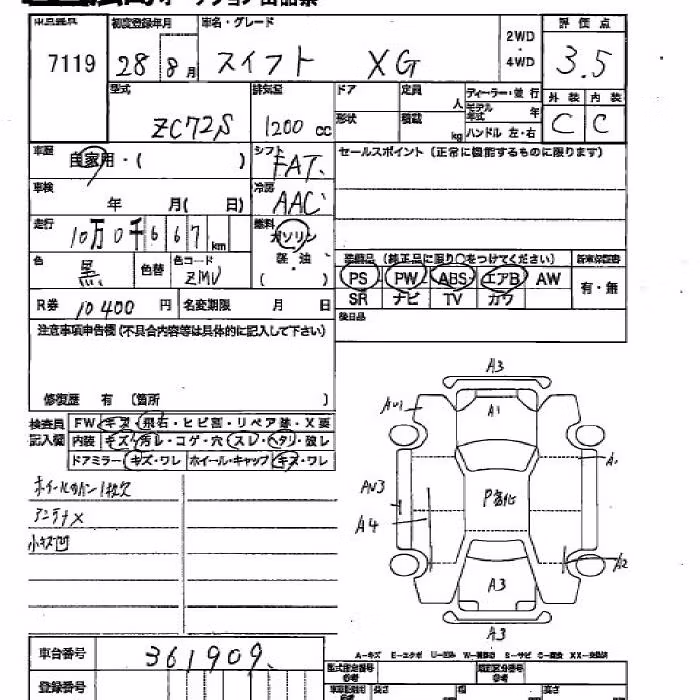 初度登録年月 車名・グレード 評価点
7119 28 8月 スイフト XG 2WD・4WD 3.5
型式 排気量 ドア 定員 人 ディーラー・並行 外装 内装
ZC72S 1200 cc 形状 積載 kg モデル年式 年 C C
ハンドル 左・右
車歴 自家用・( ) シフト FAT セールスポイント (正常に機能するものに限ります)
車検 年 月( 日) 冷房 AAC
走行 10万0千667km 燃料 ガソリン・軽油 ( )
装備品 (純正品に限り○をつけてください) 新車保証書
色 黒 色替 色コード ZMV PS PW ABS エアB AW 有・無
R券 10400 円 名変期限 月 日 SR ナビ TV カワ
注意事項申告欄(不具合内容等は具体的に記入して下さい) 後日品
修復歴 有 (箇所 )
検査員記入欄 FW キズ・飛石・ヒビ割・リペア跡・X要
内装 キズ・汚レ・コゲ・穴・スレ・ヘタリ・破レ
ドアミラー キズ・ワレ ホイール・キャップ キズ・ワレ
アンテナX
小キズ凹
A3
A1
AU1
A1
AU3
A4
A2
A3
A3
A-キズ E-エクボ U-凹み W-補修跡 S-サビ C-腐食 XX-交換済
車台番号 361909
登録番号 型式指定番号 類別区分番号
長さ 幅 高さ